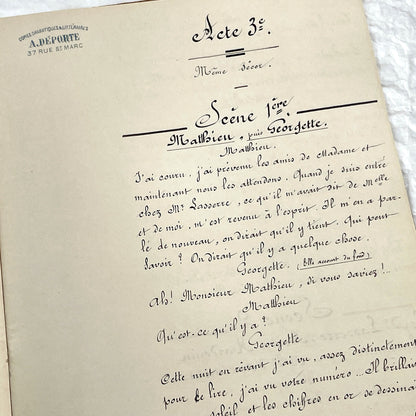 COPIES DRAMATIQUES & LITTÉRAIRES
A. DEPORTE
37 RUE St MARC
Acte 3e.
Même décor.
Scène 1ère
Matthieu, puis Georgette.
Matthieu.
J'ai couru, j'ai prévenu les amis de Madame et
maintenant nous les attendons. Quand je suis entré
chez Mr Lasserre, ce qu'il m'avait dit de Melle
et de moi, m'est revenu à l'esprit. Il m'en a par-
lé de nouveau, on dirait qu'il y tient. Qui peut
savoir? On dirait qu'il y a quelque chose.
Georgette. (Elle accourt du fond)
Ah! Monsieur Mathieu, si vous saviez!..
Matthieu
Qu'est-ce qu'il y a?
Georgette.
Cette nuit en rêvant j'ai vu, assez distinctement
pour le lire, j'ai vu votre numéro... Il brillait
soleil et les chiffres en or se dessina